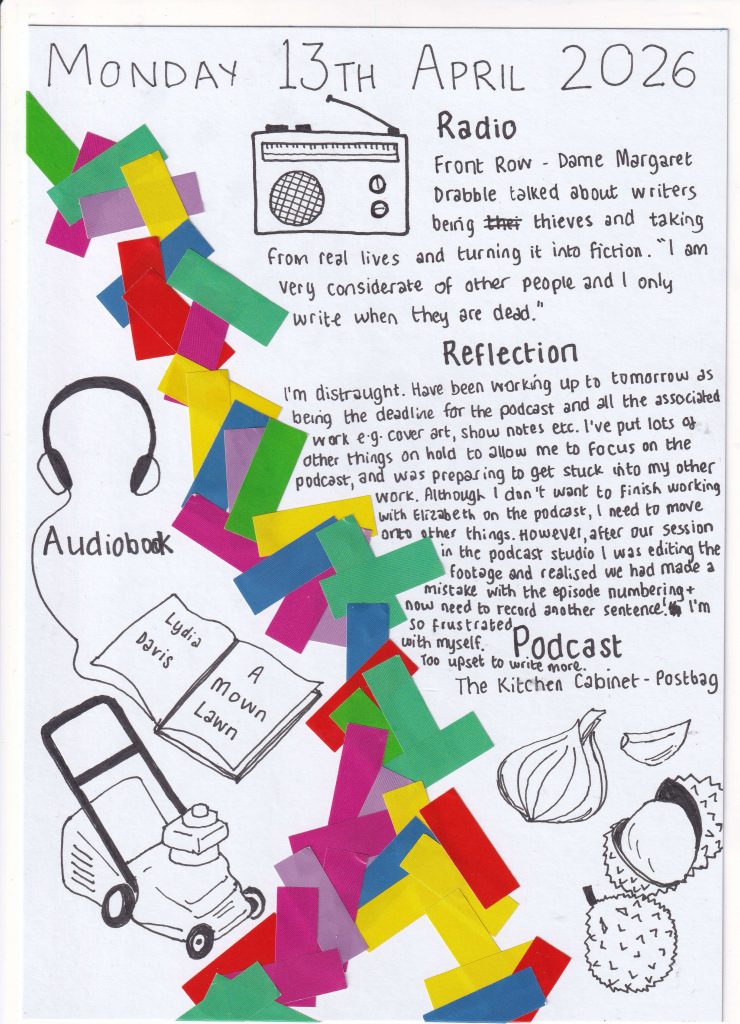 MONDAY 13TH APRIL 2026
Radio
Front Row - Dame Margaret
Drabble talked about writers
being thei thieves and taking
from real lives and turning it into fiction. "I am
very considerate of other people and I only
write when they are dead."
Reflection
I'm distraught. Have been working up to tomorrow as
being the deadline for the podcast and all the associated
work e.g. cover art, show notes etc. I've put lots of
other things on hold to allow me to focus on the
podcast, and was preparing to get stuck into my other
work. Although I don't want to finish working
with Elizabeth on the podcast, I need to move
onto other things. However, after our session
in the podcast studio I was editing the
footage and realised we had made a
mistake with the episode numbering +
now need to record another sentence! I'm
so frustrated
with myself.
Too upset to write more.
Audiobook
Lydia
Davis
A
Mown
Lawn
Podcast
The Kitchen Cabinet - Postbag